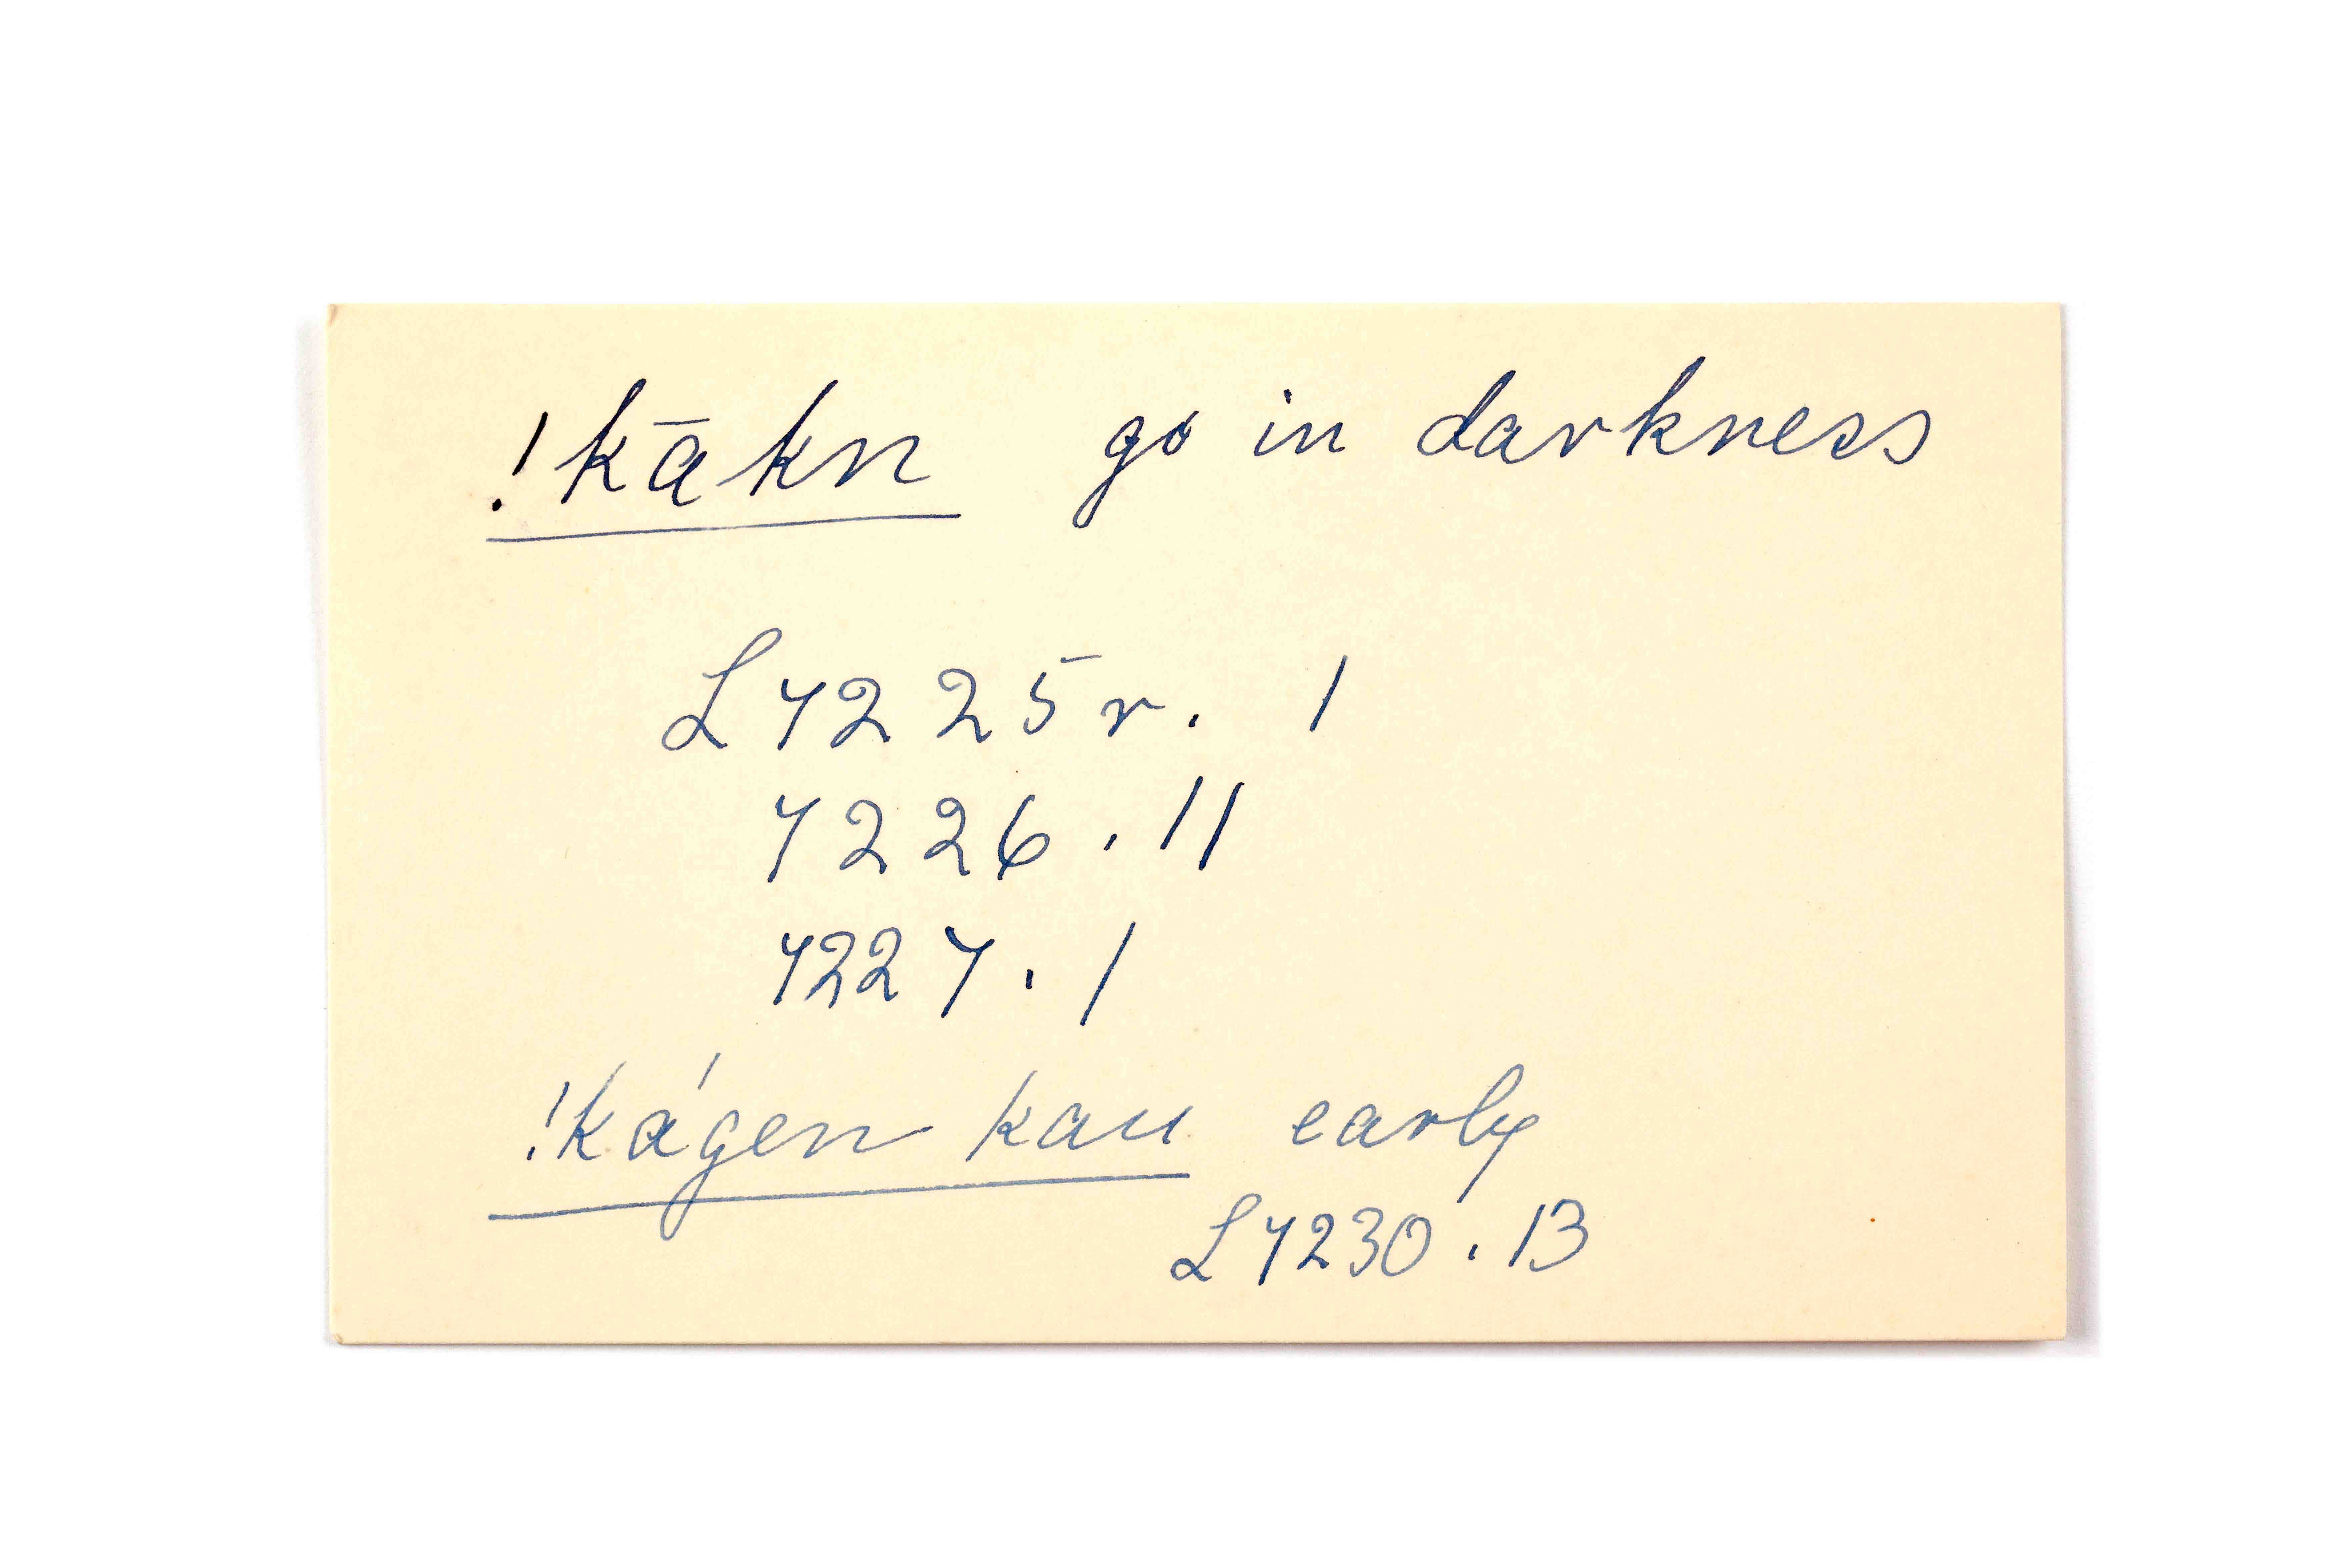 !kā̱kn go in darkness
L 7225 r. 1
7226 . 11
7227 . 1
!kágen kau early
L 7230 . 13